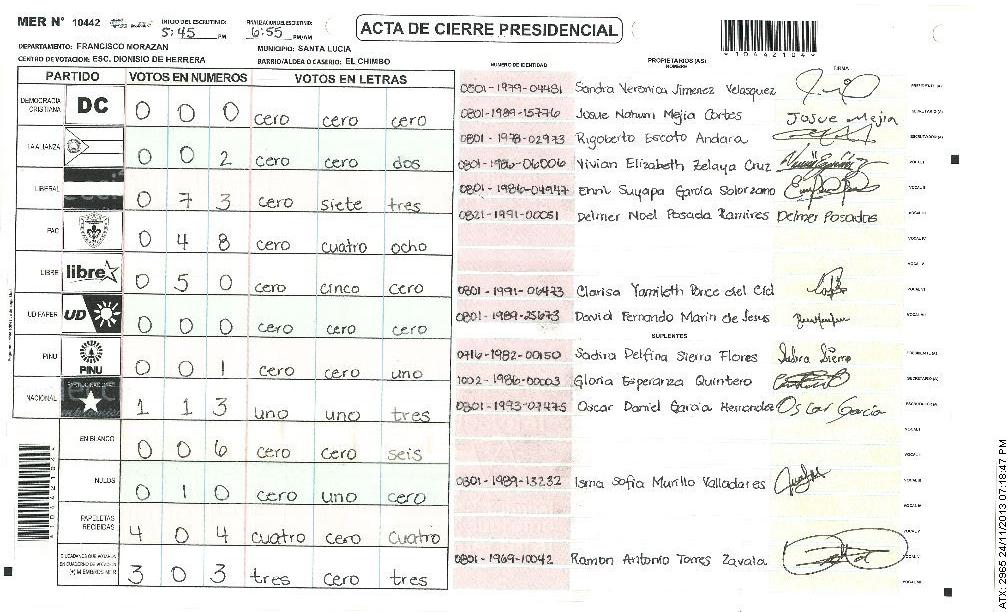 MER N° 10442
INICIO DEL ESCRUTINIO: 5:45 PM
FINALIZACION DEL ESCRUTINIO: 6:55 PM/AM
ACTA DE CIERRE PRESIDENCIAL
*10442104*
DEPARTAMENTO: FRANCISCO MORAZAN
MUNICIPIO: SANTA LUCIA
CENTRO DE VOTACION: ESC. DIONISIO DE HERRERA
BARRIO/ALDEA O CASERIO: EL CHIMBO
PARTIDO VOTOS EN NUMEROS VOTOS EN LETRAS
DEMOCRACIA CRISTIANA DC 0 0 0 cero cero cero
LA ALIANZA 0 0 2 cero cero dos
LIBERAL 0 7 3 cero siete tres
PAC 0 4 8 cero cuatro ocho
LIBRE libre 0 5 0 cero cinco cero
UD FAPER UD 0 0 0 cero cero cero
PINU PINU 0 0 1 cero cero uno
NACIONAL 1 1 3 uno uno tres
EN BLANCO 0 0 6 cero cero seis
NULOS 0 1 0 cero uno cero
PAPELETAS RECIBIDAS 4 0 4 cuatro cero cuatro
3 0 3 tres cero tres
NUMERO DE IDENTIDAD PROPIETARIOS (AS) NOMBRE FIRMA
0801-1979-04481 Sandra Veronica Jimenez Velasquez
0801-1989-15776 Josue Nahum Mejia Cortes Josue Mejia
0801-1978-02973 Rigoberto Escoto Andara
0801-1986-06006 Vivian Elizabeth Zelaya Cruz
0801-1986-04947 Enni Suyapa Garcia Solorzano
0821-1991-00051 Delmer Noel Posada Ramires Delmer Posadas
0801-1991-06473 Clarisa Yamileth Ponce del Cid
0801-1989-25673 David Fernando Marin de Jesus
SUPLENTES
0716-1982-00150 Sadira Delfina Sierra Flores
1002-1986-00003 Gloria Esperanza Quintero
0801-1993-07475 Oscar Daniel Garcia Hernandez Oscar Garcia
0801-1989-13232 Isma Sofia Murillo Valladares
0801-1969-10042 Ramon Antonio Torres Zavala
ATX: 2965 24/11/2013 07:18:47 PM